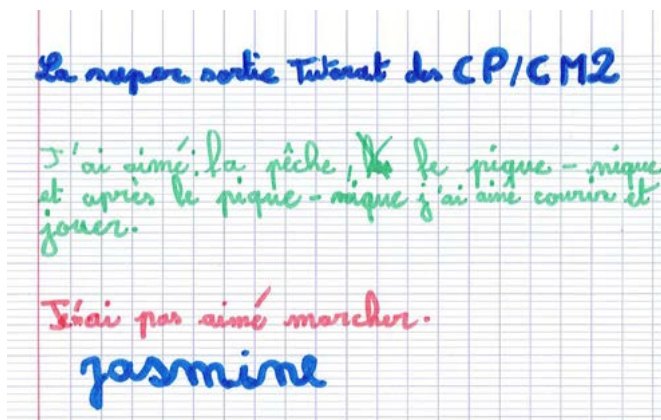 La super sortie Tutorat des CP/CM2
J'ai aimé: la pêche, le pique-nique
et après le pique-nique j'ai aimé courir et
jouer.
Je n'ai pas aimé marcher.
jasmine